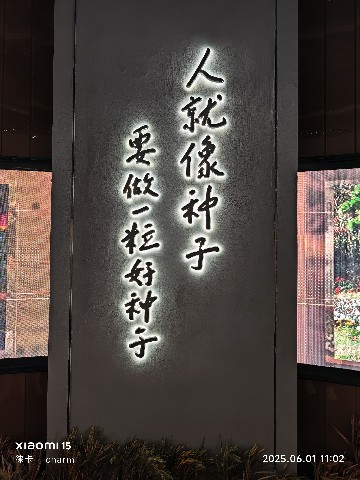 人就像种子
要做一粒好种子
xiaomi 15
徕卡 | charm
2025.06.01 11:02